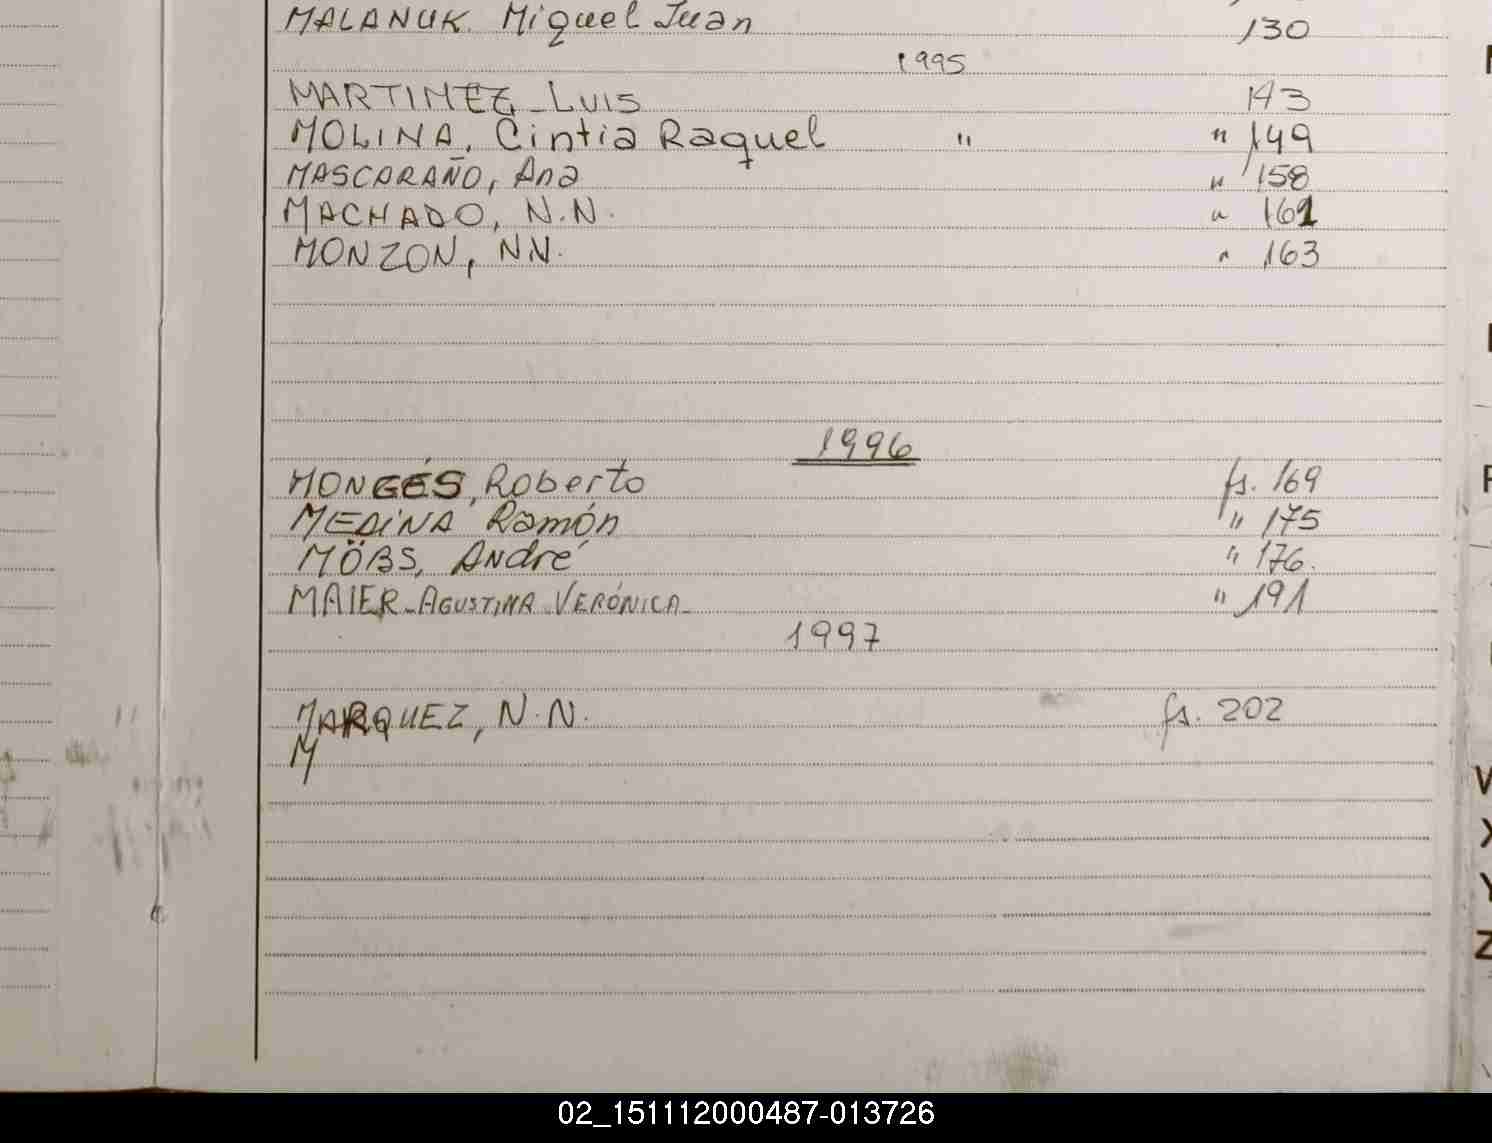 MALANUK Miguel Juan 130
1995
MARTINEZ - Luis 143
MOLINA, Cintia Raquel " " 149
MASCARAÑO, Ana " 158
MACHADO, N.N. " 161
MONZON, N.N. " 163
1996
MONGÉS, Roberto fs. 169
MEDINA Ramón " 175
MÖBS, André " 176.
MAIER - AGUSTINA VERÓNICA - " 191
1997
MARQUEZ, N.N. fs. 202
M
W
X
Y
Z
02_151112000487-013726